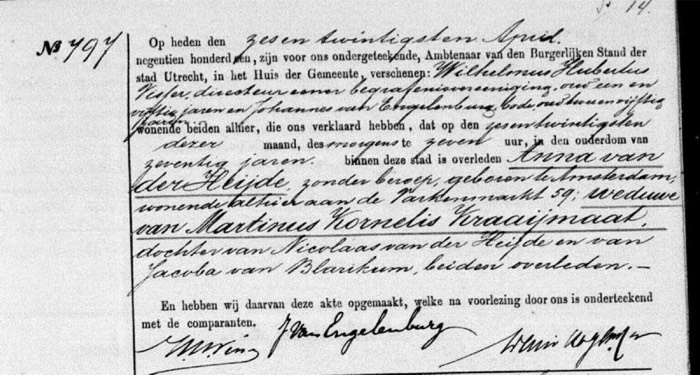 14.
No 797
Op heden den zesentwintigsten April
negentien honderd een, zijn voor ons ondergeteekende, Ambtenaar van den Burgerlijken Stand der
stad Utrecht, in het Huis der Gemeente, verschenen: Wilhelmus Hubertus
Visser, directeur eener begrafenisvereeniging, oud een en
vijftig jaren en Johannes van Engelenburg, bode, oud tweeenvijftig
jaren
wonende beiden alhier, die ons verklaard hebben, dat op den zesentwintigsten
dezer maand, des morgens te zeven uur, in den ouderdom van
zeventig jaren. binnen deze stad is overleden Anna van
der Heijde, zonder beroep, geboren te Amsterdam,
wonende alhier aan de Varkenmarkt 59; weduwe
van Martinus Kornelis Kraaijmaat,
dochter van Nicolaas van der Heijde en van
Jacoba van Blarikum, beiden overleden.—
En hebben wij daarvan deze akte opgemaakt, welke na voorlezing door ons is onderteekend
met de comparanten.
J van Engelenburg